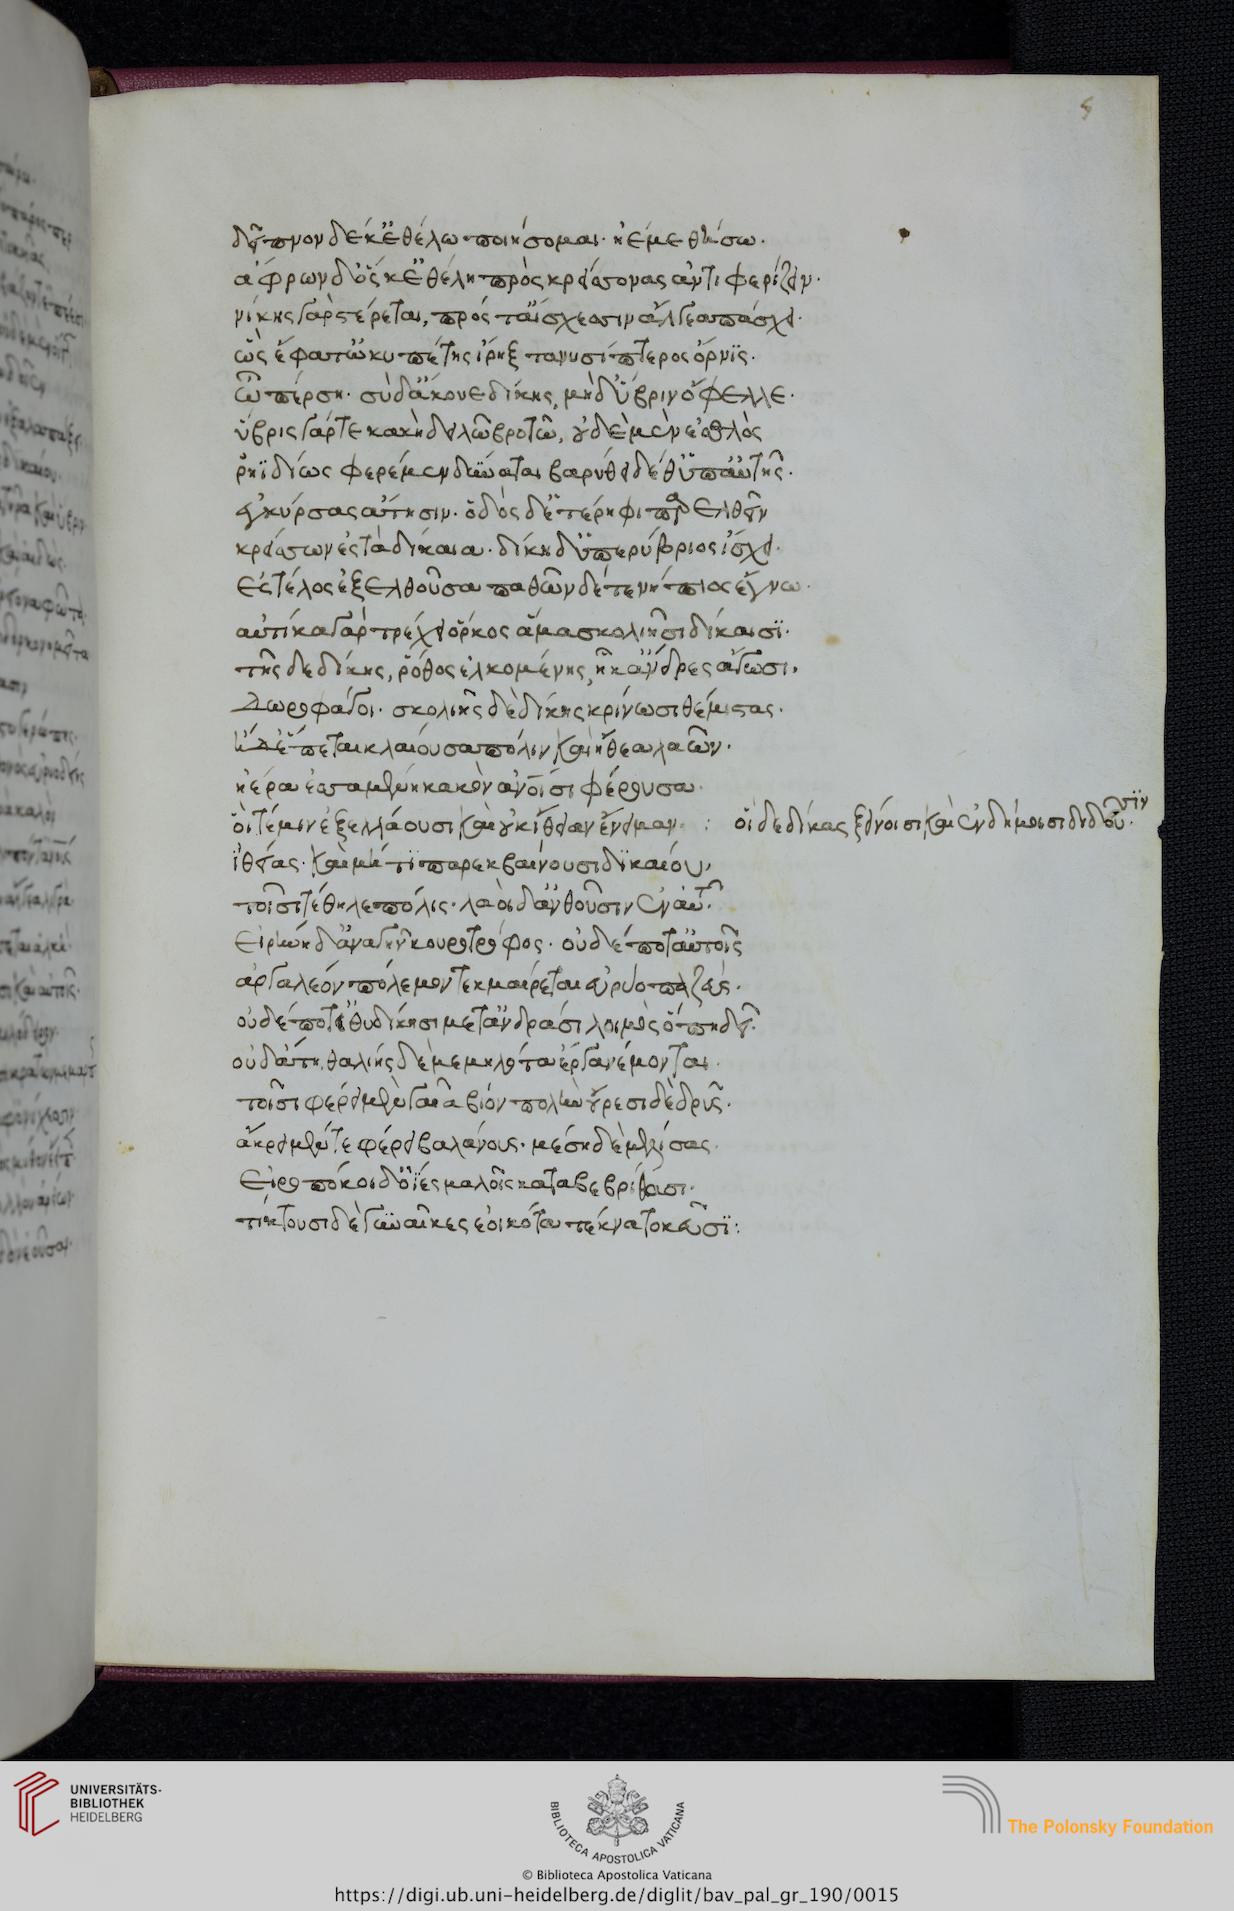 δεῖπνον δέ κ' ἐθέλω ποιήσομαι· ἠὲ μεθήσω.
ἄφρων δ' ὅς κ' ἐθέλη πρὸς κρείσσονας ἀντιφερίζειν·
νίκης γὰρ στέρεται, πρός τ' αἴσχεσιν ἄλγεα πάσχει·
ὣς ἔφατ' ὠκυπέτης ἴρηξ τανυσίπτερος ὄρνϊς.
ὦ πέρση· σὺ δ' ἄκουε δίκης, μηδ' ὕβριν ὄφελλε·
ὕβρις γάρ τε κακὴ δειλῶ βροτῶ, οὐδὲ μὲν ἐσθλὸς
ῥηϊδίως φερέμεν δύναται βαρύθει δέ θ' ὑπ' αὐτῆς.
ἐγκύρσας ἄτησιν· ὁδὸς δ' ἑτέρηφι παρελθεῖν
κρείσσων ἐς τὰ δίκαια· δίκη δ' ὑπὲρ ὕβριος ἴσχει·
ἐς τέλος ἐξελθοῦσα παθῶν δέ τε νήπιος ἔγνω·
αὐτίκα γὰρ τρέχει ὅρκος ἅμα σκολιῇσι δίκαισϊ·
τῆς δε δίκης, ῥόθος ἑλκομένης, ᾗ κ' ἄνδρες ἄγωσι,
Δωροφάγοι· σκολιῇς δὲ δίκης κρίνωσι θέμιστας·
ἡ δ' ἕπεται κλαίουσα πόλιν καὶ ἤθεα λαῶν.
ἠέρα ἑσσαμένη κακὸν ἀνοισι φέρουσα.
ὅι τέ μιν ἐξελάουσι καὶ οὐκ ἰθεῖαν ἔνειμαν. : οἳ δε δίκας ξείνοισι καὶ ἐνδήμοισι διδοῦσϊν.
ἰθείας· καὶ μή τϊ παρεκβαίνουσι δϊκαίου,
τοῖσι τέθηλε πόλις· λαοὶ δ' ἀνθοῦσιν ἐν αὐτῆ.
Εἰρήνη δ' ἀνὰ γῆν κουροτρόφος· οὐδέ ποτ' αὐτοῖς
ἀργαλέον πόλεμον τεκμαίρεται εὐρύοπα ζεύς.
οὐδέ ποτ' ἰθυδίκησι μετ' ἀνδράσι λοιμὸς ὀπηδεῖ.
οὐδ' ἄτη, θαλίης δὲ μεμηλότα ἔργα νέμονται.
τοῖσι φέρει μὲν γαῖα βίον πολὺν οὔρεσι δὲ δρῦς.
ἄκρει μέν τε φέρει βαλάνους· μέση δὲ μελίσσας.
Εἰροπόκοι δ' ὄϊες μαλοῖς καταβεβρίθασι·
τίκτουσι δὲ γυναῖκες ἐοικότα τέκνα τοκεῦσϊ:
UNIVERSITÄTS-
BIBLIOTHEK
HEIDELBERG
BIBLIOTECA APOSTOLICA VATICANA
The Polonsky Foundation
© Biblioteca Apostolica Vaticana
https://digi.ub.uni-heidelberg.de/diglit/bav_pal_gr_190/0015